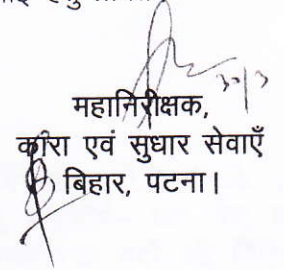 30/3
महानिरीक्षक,
कारा एवं सुधार सेवाएँ
बिहार, पटना।